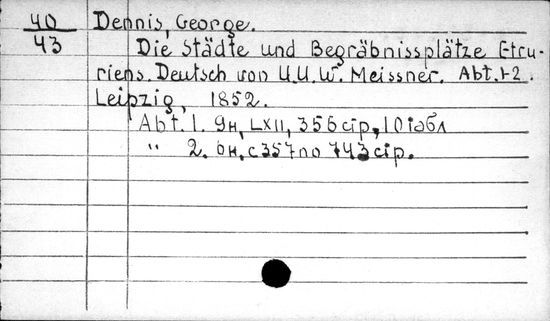 40
43
Dennis, George.
Die Städte und Begräbnissplätze Etru-
riens. Deutsch von N.N.W. Meissner. Abt. 1-2.
Leipzig, 1852.
Abt. 1. 9н, LXII, 356 стр., 10 табл
" 2. 6н, с 357 по 743 стр.